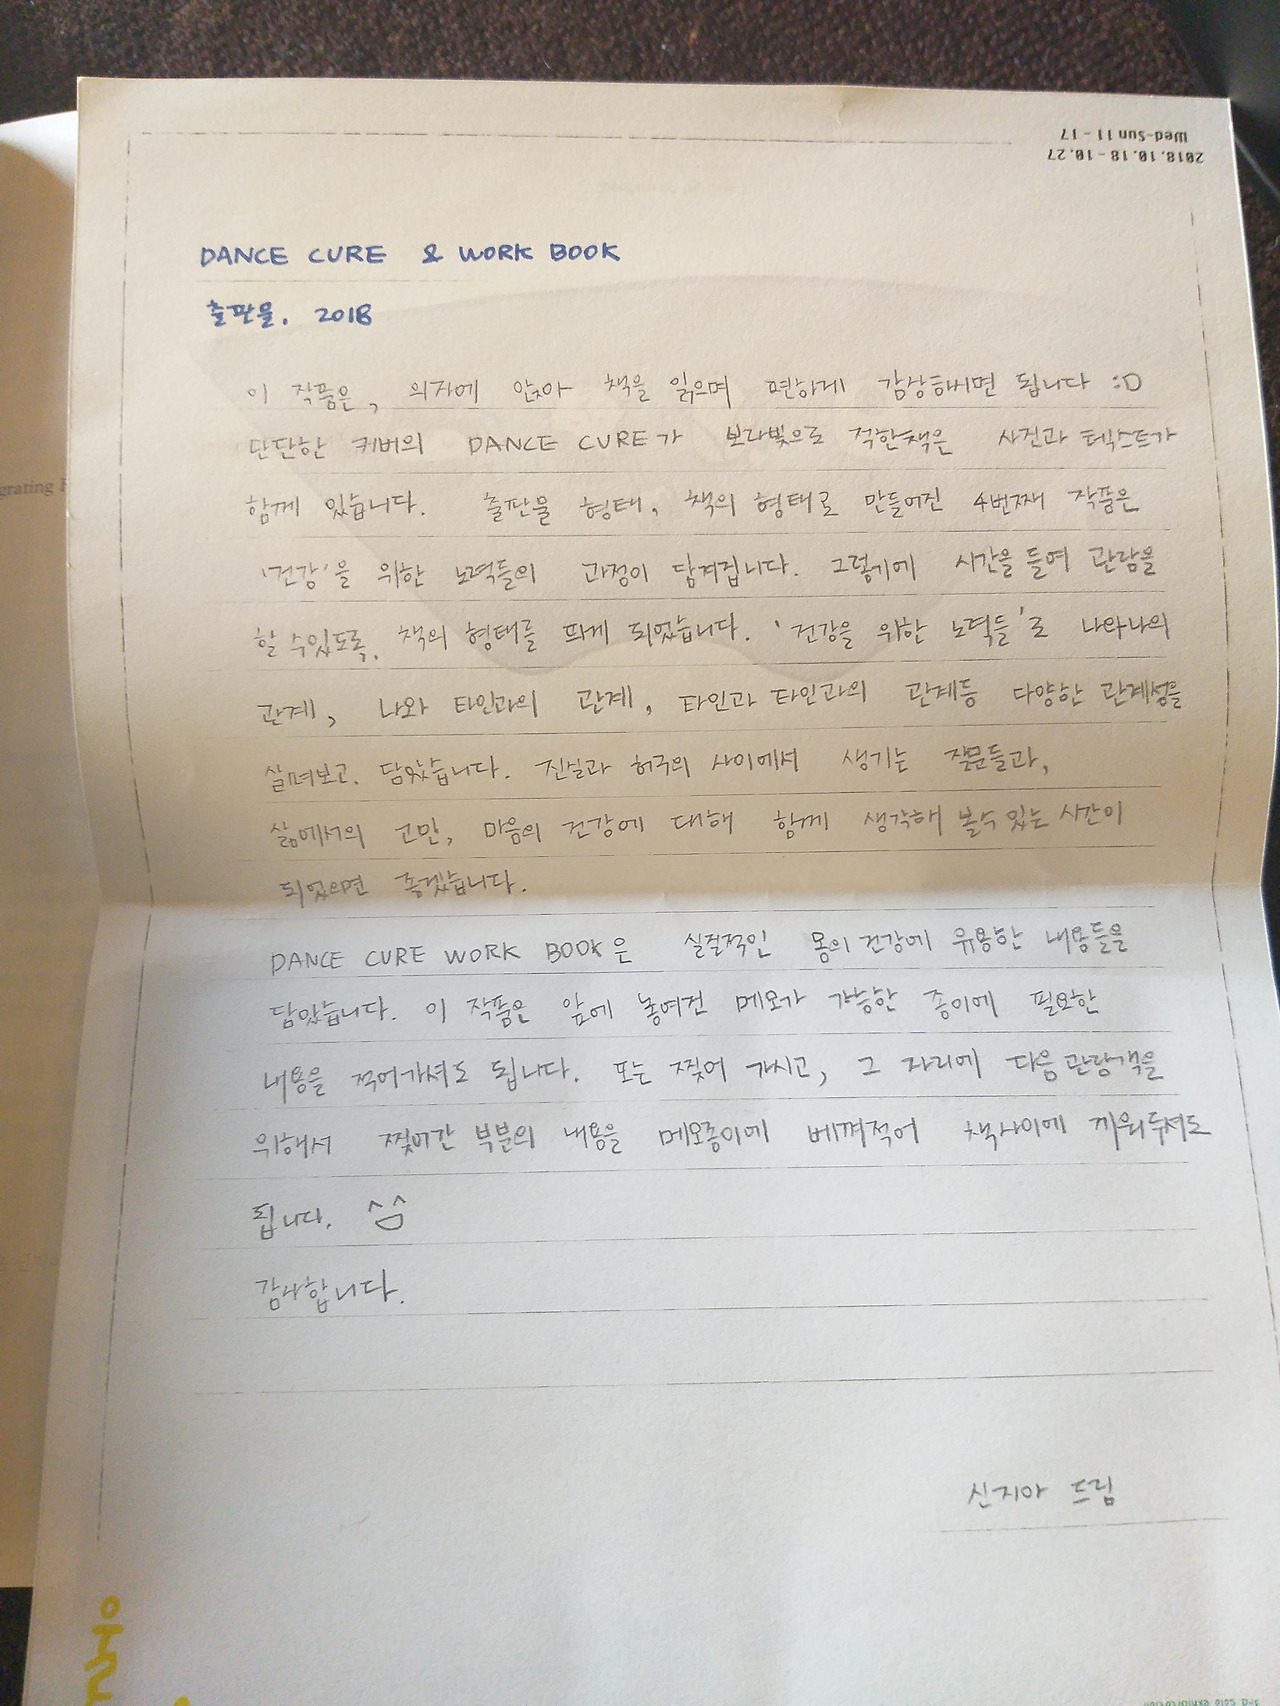 Wed-Sun 11 - 17
2018.10.18 - 10.27
DANCE CURE & WORK BOOK
출판물. 2018
이 작품은, 의자에 앉아 책을 읽으며 편하게 감상하시면 됩니다 :D
단단한 커버의 DANCE CURE가 보라빛으로 적한책은 사진과 텍스트가
함께 있습니다. 출판물 형태, 책의 형태로 만들어진 4번째 작품은
'건강'을 위한 노력들의 과정이 담겨집니다. 그렇기에 시간을 들여 관람을
할 수있도록, 책의 형태를 띄게 되었습니다. '건강을 위한 노력들'로 나와나의
관계, 나와 타인과의 관계, 타인과 타인과의 관계등 다양한 관계성을
살펴보고. 담았습니다. 진실과 허구의 사이에서 생기는 질문들과,
삶에서의 고민, 마음의 건강에 대해 함께 생각해 볼수 있는 시간이
되었으면 좋겠습니다.
DANCE CURE WORK BOOK은 실질적인 몸의 건강에 유용한 내용들을
담았습니다. 이 작품은 앞에 놓여진 메모가 가능한 종이에 필요한
내용을 적어가셔도 됩니다. 또는 찢어 가시고, 그 자리에 다음 관람객을
위해서 찢어간 부분의 내용을 메모종이에 베껴적어 책사이에 끼워두셔도
됩니다. ^ㅁ^
감사합니다.
신지아 드림
grating
3rd solo exhibition